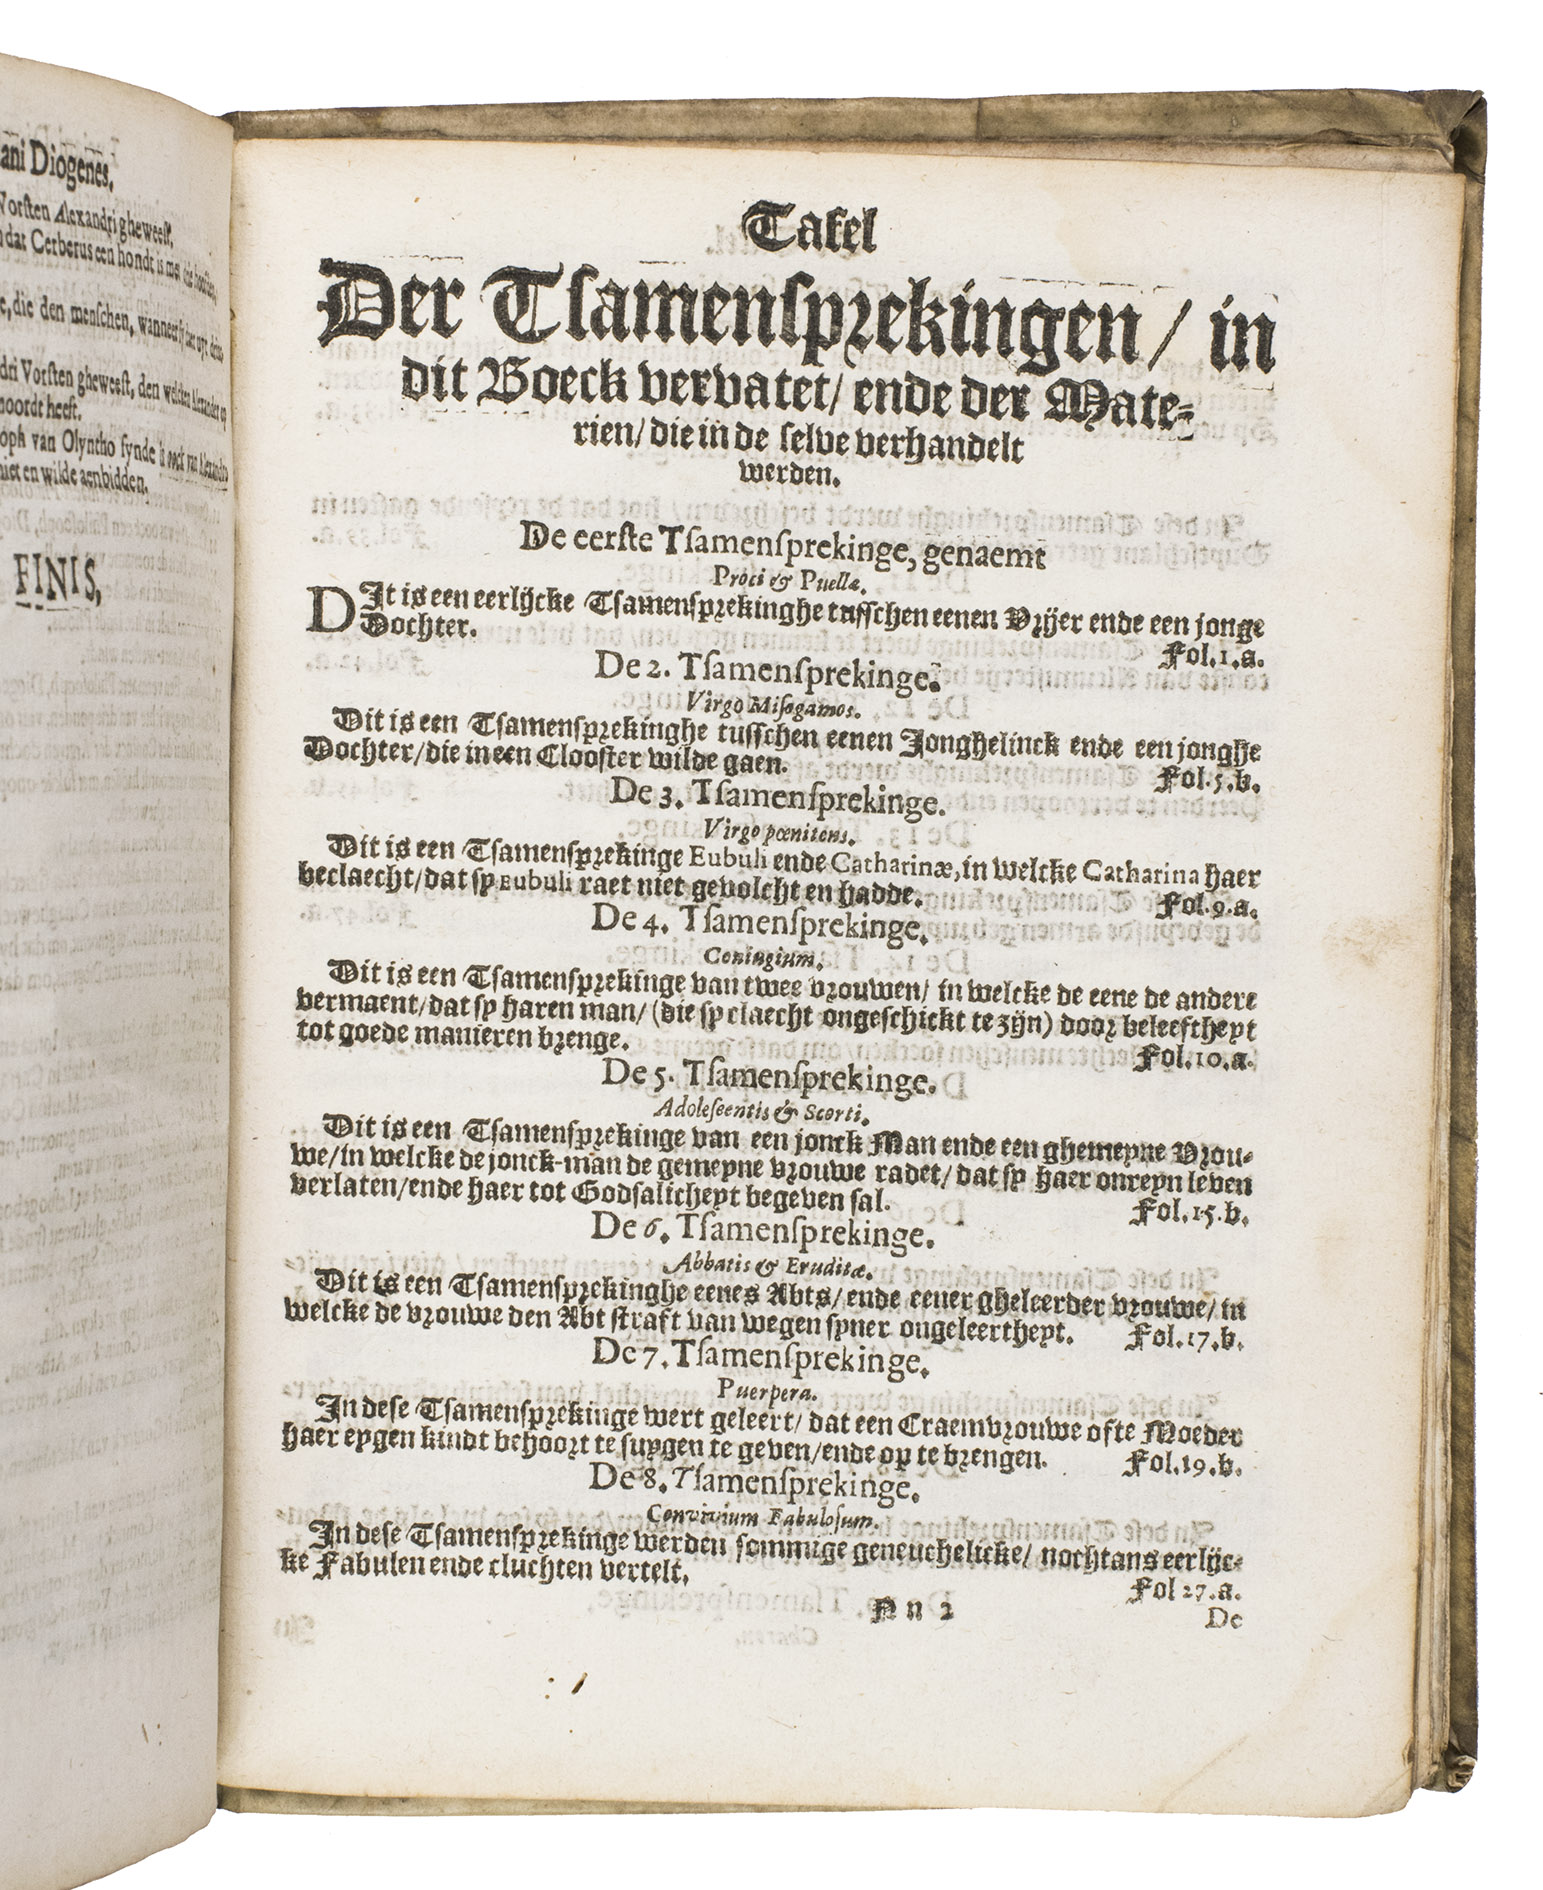 ani Diogenes.
Vorsten Alexandri gheweest.
dat Cerberus een hondt is met
e, die den menschen, wanneer
dri Vorsten gheweest, den welcken Alexander
moordt heeft.
van Olyntho synde is oock van Alexandro
niet en wilde aenbidden.
FINIS.
Tafel
Der Tsamensprekingen / in
dit Boeck vervatet/ ende der Mate-
rien/ die in de selve verhandelt
werden.
De eerste Tsamensprekinge, genaemt
Proci & Puellæ.
DIt is een eerlijcke Tsamensprekinghe tusschen eenen Vrijer ende een jonge
Dochter. Fol.1.a.
De 2. Tsamensprekinge.
Virgo Misogamos.
Dit is een Tsamensprekinghe tusschen eenen Jonghelinck ende een jonghe
Dochter/ die in een Clooster wilde gaen. Fol.5.b.
De 3. Tsamensprekinge.
Virgo pœnitens.
Dit is een Tsamensprekinge Eubuli ende Catharinæ, in welcke Catharina haer
beclaecht/ dat sy Eubuli raet niet gevolcht en hadde. Fol.9.a.
De 4. Tsamensprekinge.
Coniugium.
Dit is een Tsamensprekinge van twee vrouwen/ in welcke de eene de andere
vermaent/ dat sy haren man/ (die sy claecht ongeschickt te zijn) door beleeftheyt
tot goede manieren brenge. Fol.10.a.
De 5. Tsamensprekinge.
Adoleseentis & Scorti.
Dit is een Tsamensprekinge van een jonck Man ende een ghemeyne Vrou-
we/ in welcke de jonck-man de gemeyne vrouwe radet/ dat sy haer onreyn leven
verlaten/ ende haer tot Godsalicheyt begeven sal. Fol.15.b.
De 6. Tsamensprekinge.
Abbatis & Eruditæ.
Dit is een Tsamensprekinghe eenes Abts/ ende eener gheleerder vrouwe/ in
welcke de vrouwe den Abt straft van wegen syner ongeleertheyt. Fol.17.b.
De 7. Tsamensprekinge.
Puerpera.
In dese Tsamensprekinge wert geleert/ dat een Craemvrouwe ofte Moeder
haer eygen kindt behoort te suygen te geven/ ende op te brengen. Fol.19.b.
De 8. Tsamensprekinge.
Convivium Fabulosum.
In dese Tsamensprekinge werden sommige geneuchelicke/ nochtans eerlijc-
ke Fabulen ende cluchten vertelt. Fol 27.a.
Nn 2 De